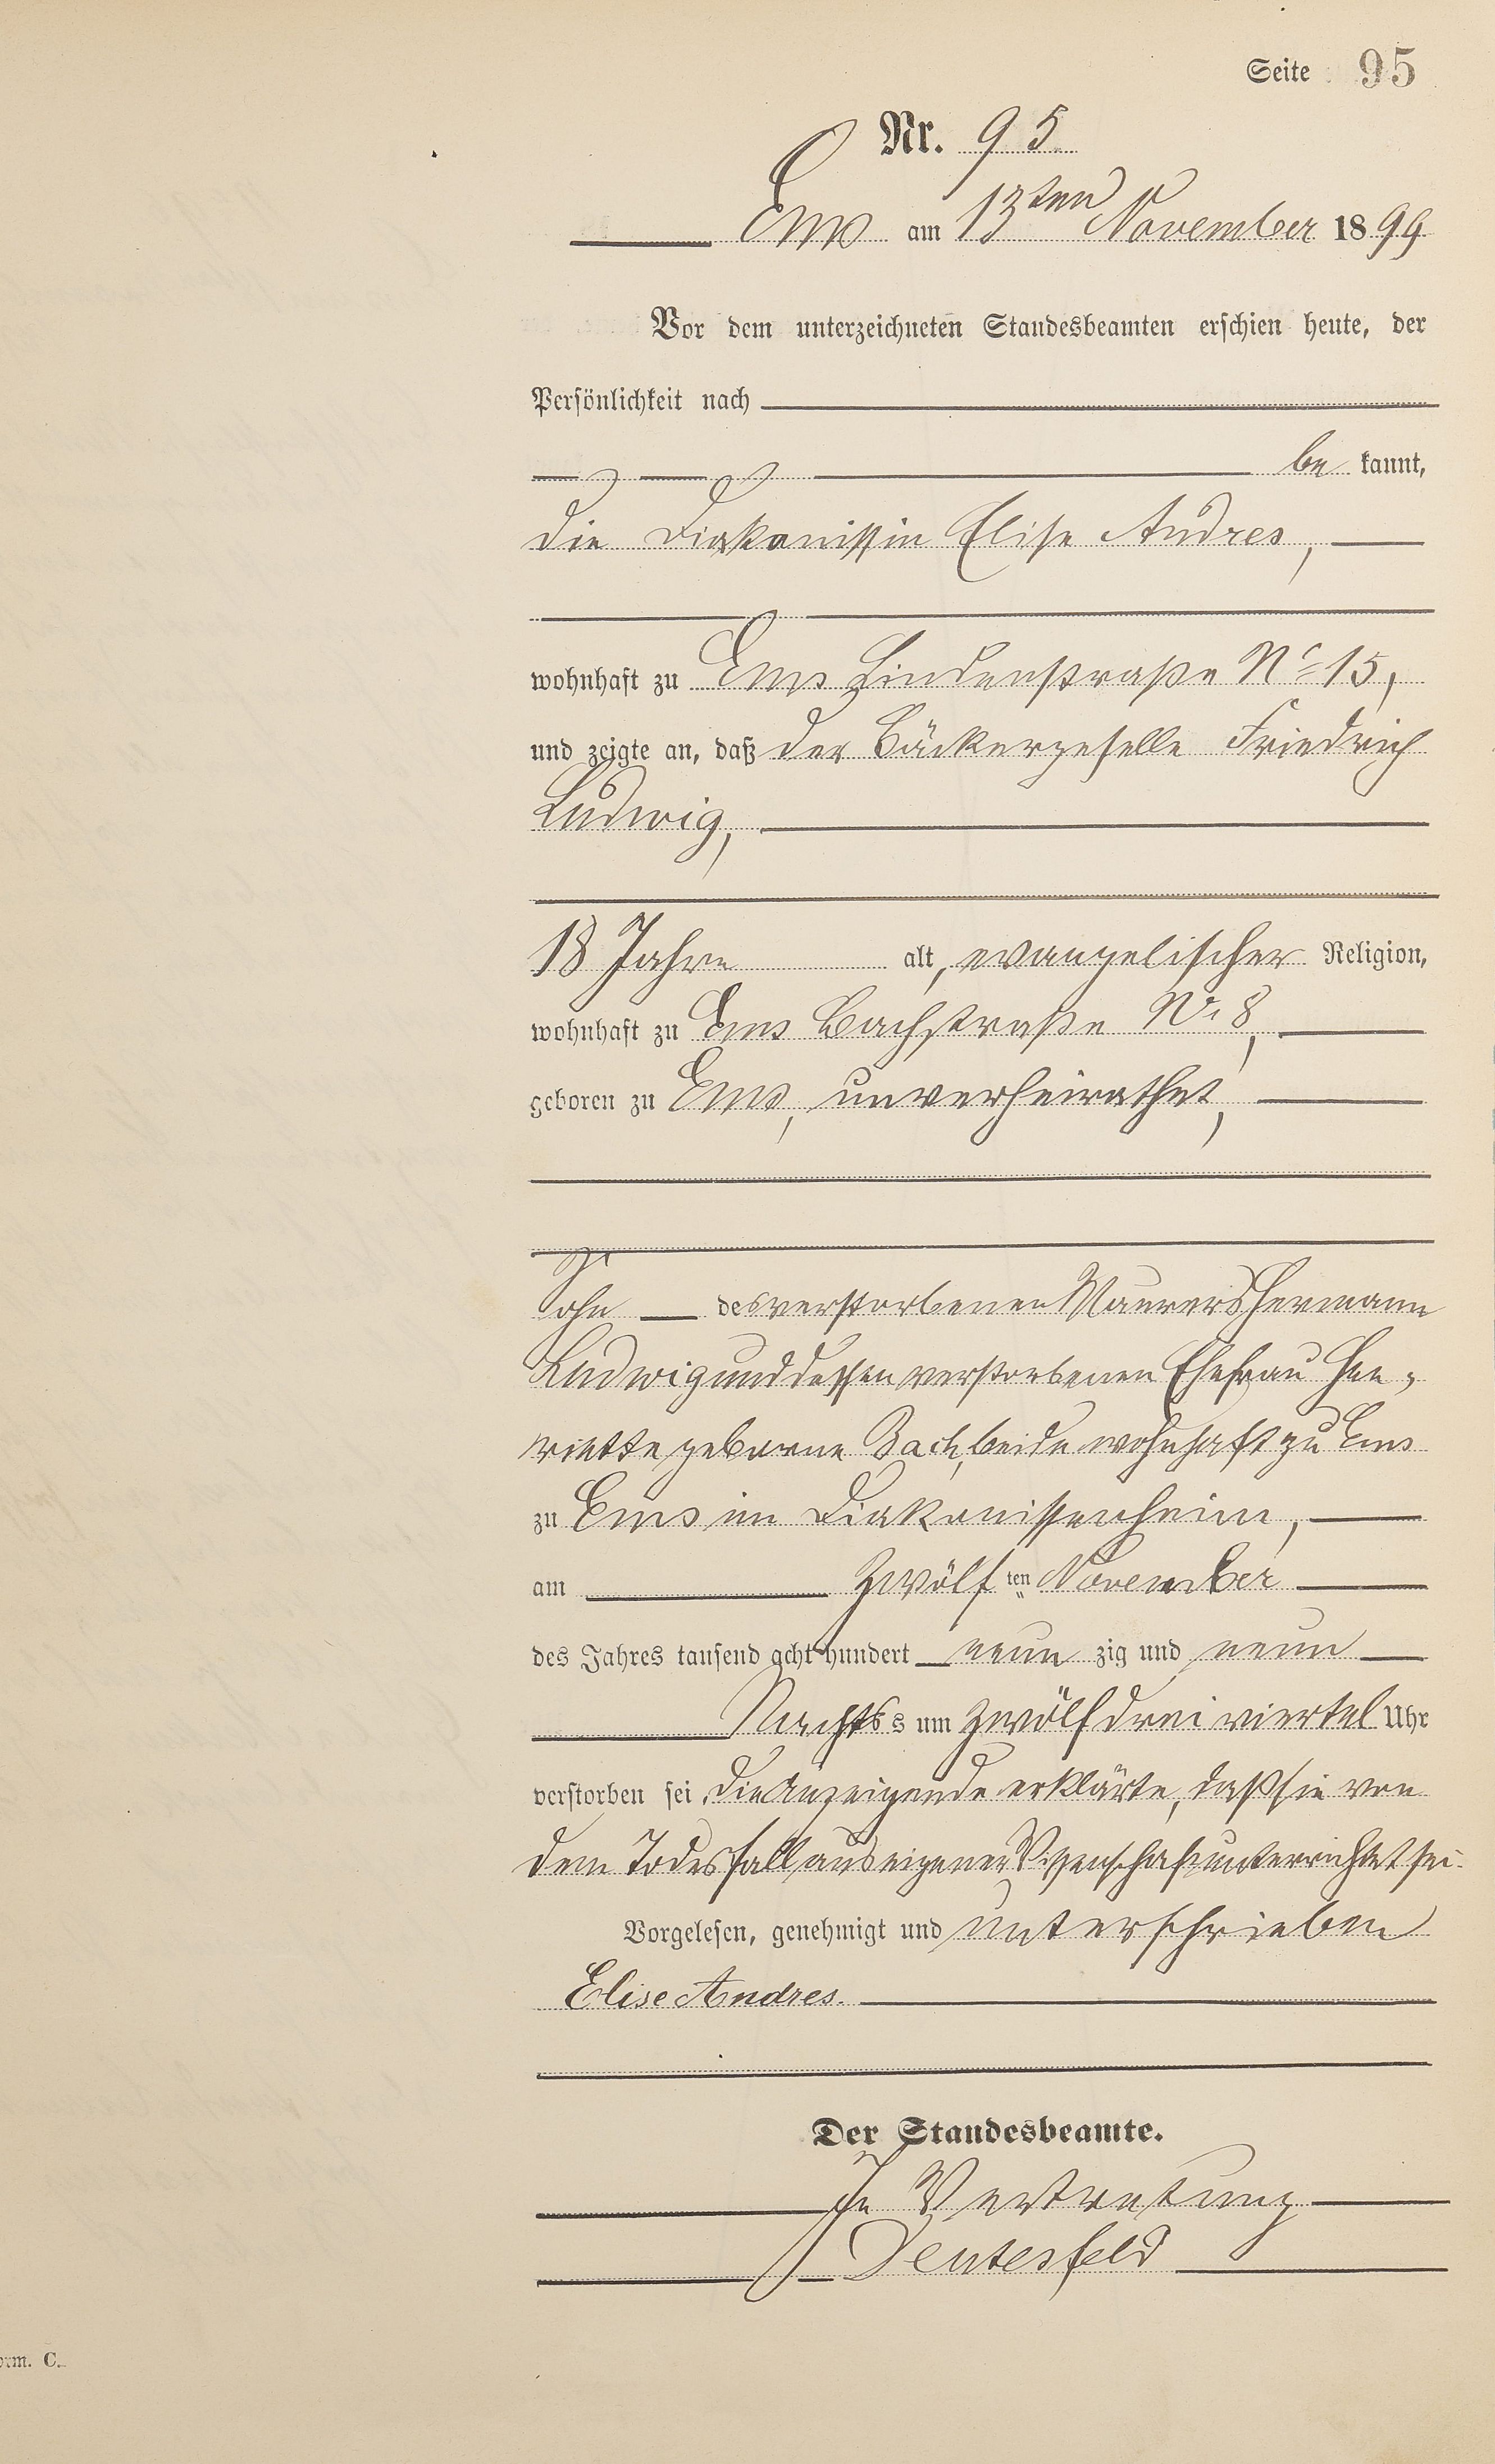 Seite 95
Nr. 95
Ems am 13ten November 1899
Vor dem unterzeichneten Standesbeamten erschien heute, der
Persönlichkeit nach
be kannt,
die Diakonissin Elise Andres,
wohnhaft zu Ems Lindenstraße No 15,
und zeigte an, daß der Bäckergeselle Friedrich
Ludwig,
18 Jahre alt, evangelischer Religion,
wohnhaft zu Ems Bachstraße Nr 8,
geboren zu Ems, unverheirathet,
Sohn des verstorbenen Maurers Hermann
Ludwig und dessen verstorbenen Ehefrau Hen-
riette geborne Bach, beide wohnhaft zu Ems
zu Ems im Diakonissenheim,
am Zwölf ten November
des Jahres tausend acht hundert neun zig und neun
Nachts s um zwölf drei viertel Uhr
verstorben sei, die Anzeigende erklärte, daß sie von
dem Todesfall aus eigener Wissenschaft unterrichtet sei.
Vorgelesen, genehmigt und unterschrieben
Elise Andres.
Der Standesbeamte.
In Vertretung
orm. C.